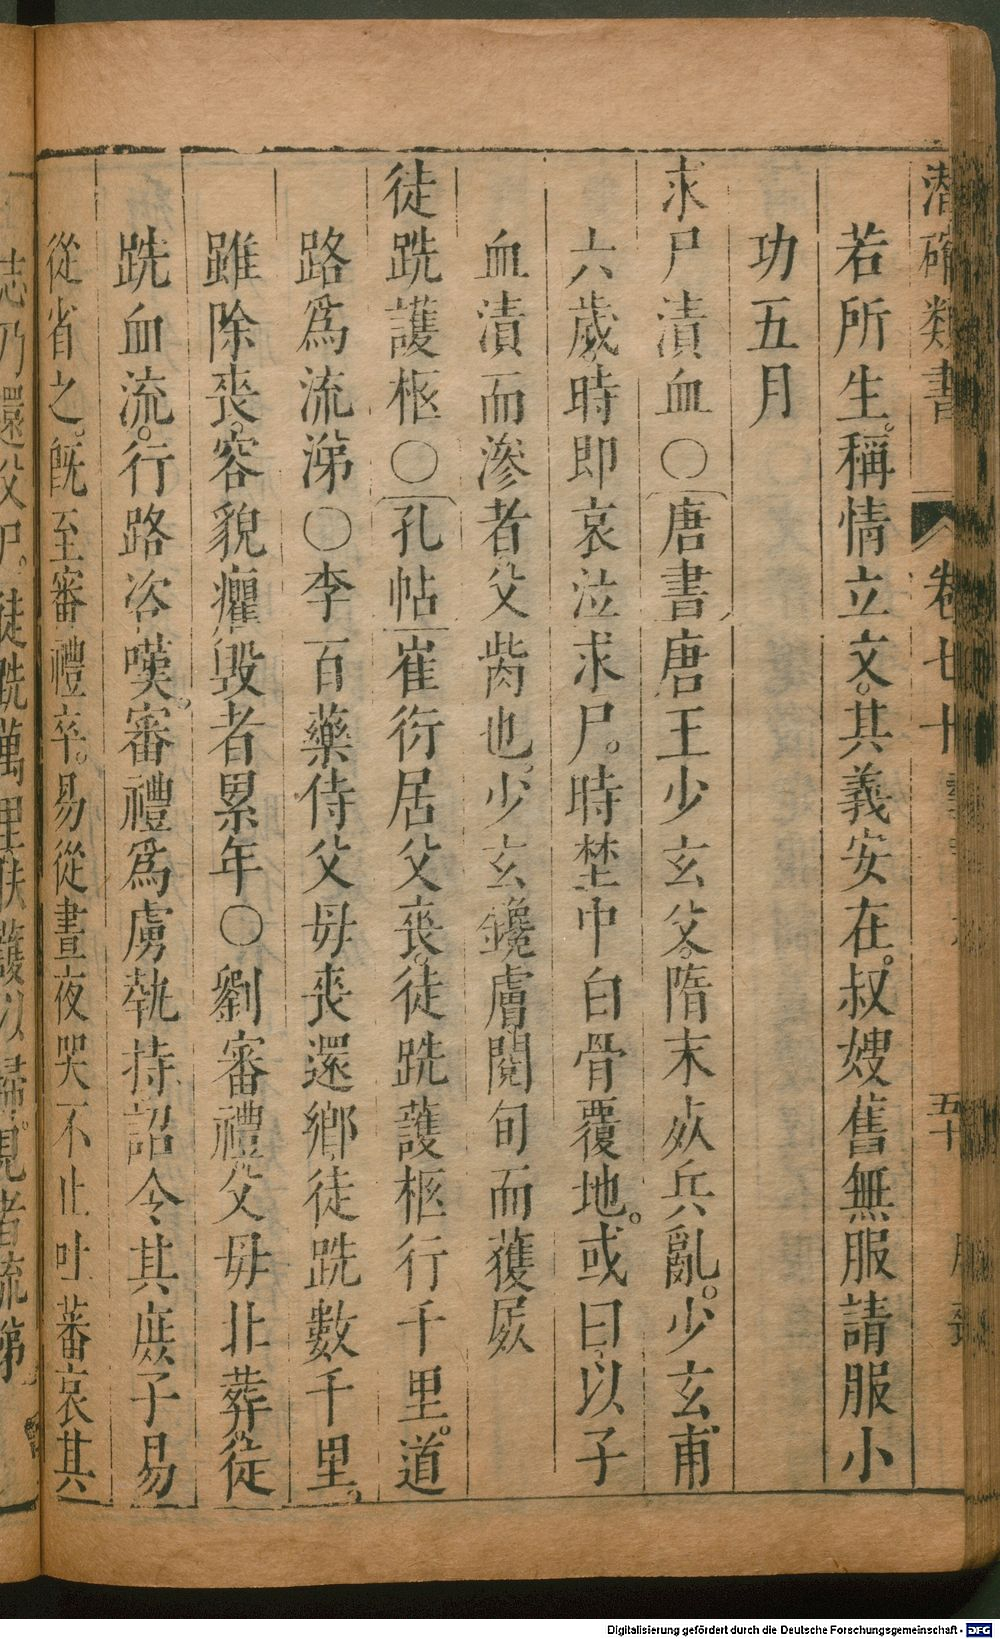 潛確類書 卷七十 五十
若所生。稱情立文。其義安在。叔嫂舊無服請服小
功五月
求尸漬血○唐書唐王少玄父。隋末死兵亂。少玄甫
六歲時即哀泣求尸。時埜中白骨覆地。或曰以子
血漬而滲者父胔也。少玄鑱膚閱旬而獲屍
徒跣護柩○孔帖崔衍居父喪。徒跣護柩行千里。道
路為流涕○李百藥侍父母喪還鄉徒跣數千里。
雖除喪。容貌癯毀者累年○劉審禮父母北葬。徒
跣血流。行路咨嘆。審禮為虜執持詔令其庶子易
從省之。既至審禮卒。易從晝夜哭不止吐蕃哀其
志乃還父尸。徒跣萬里扶護以歸。見者流涕
Digitalisierung gefördert durch die Deutsche Forschungsgemeinschaft - DFG